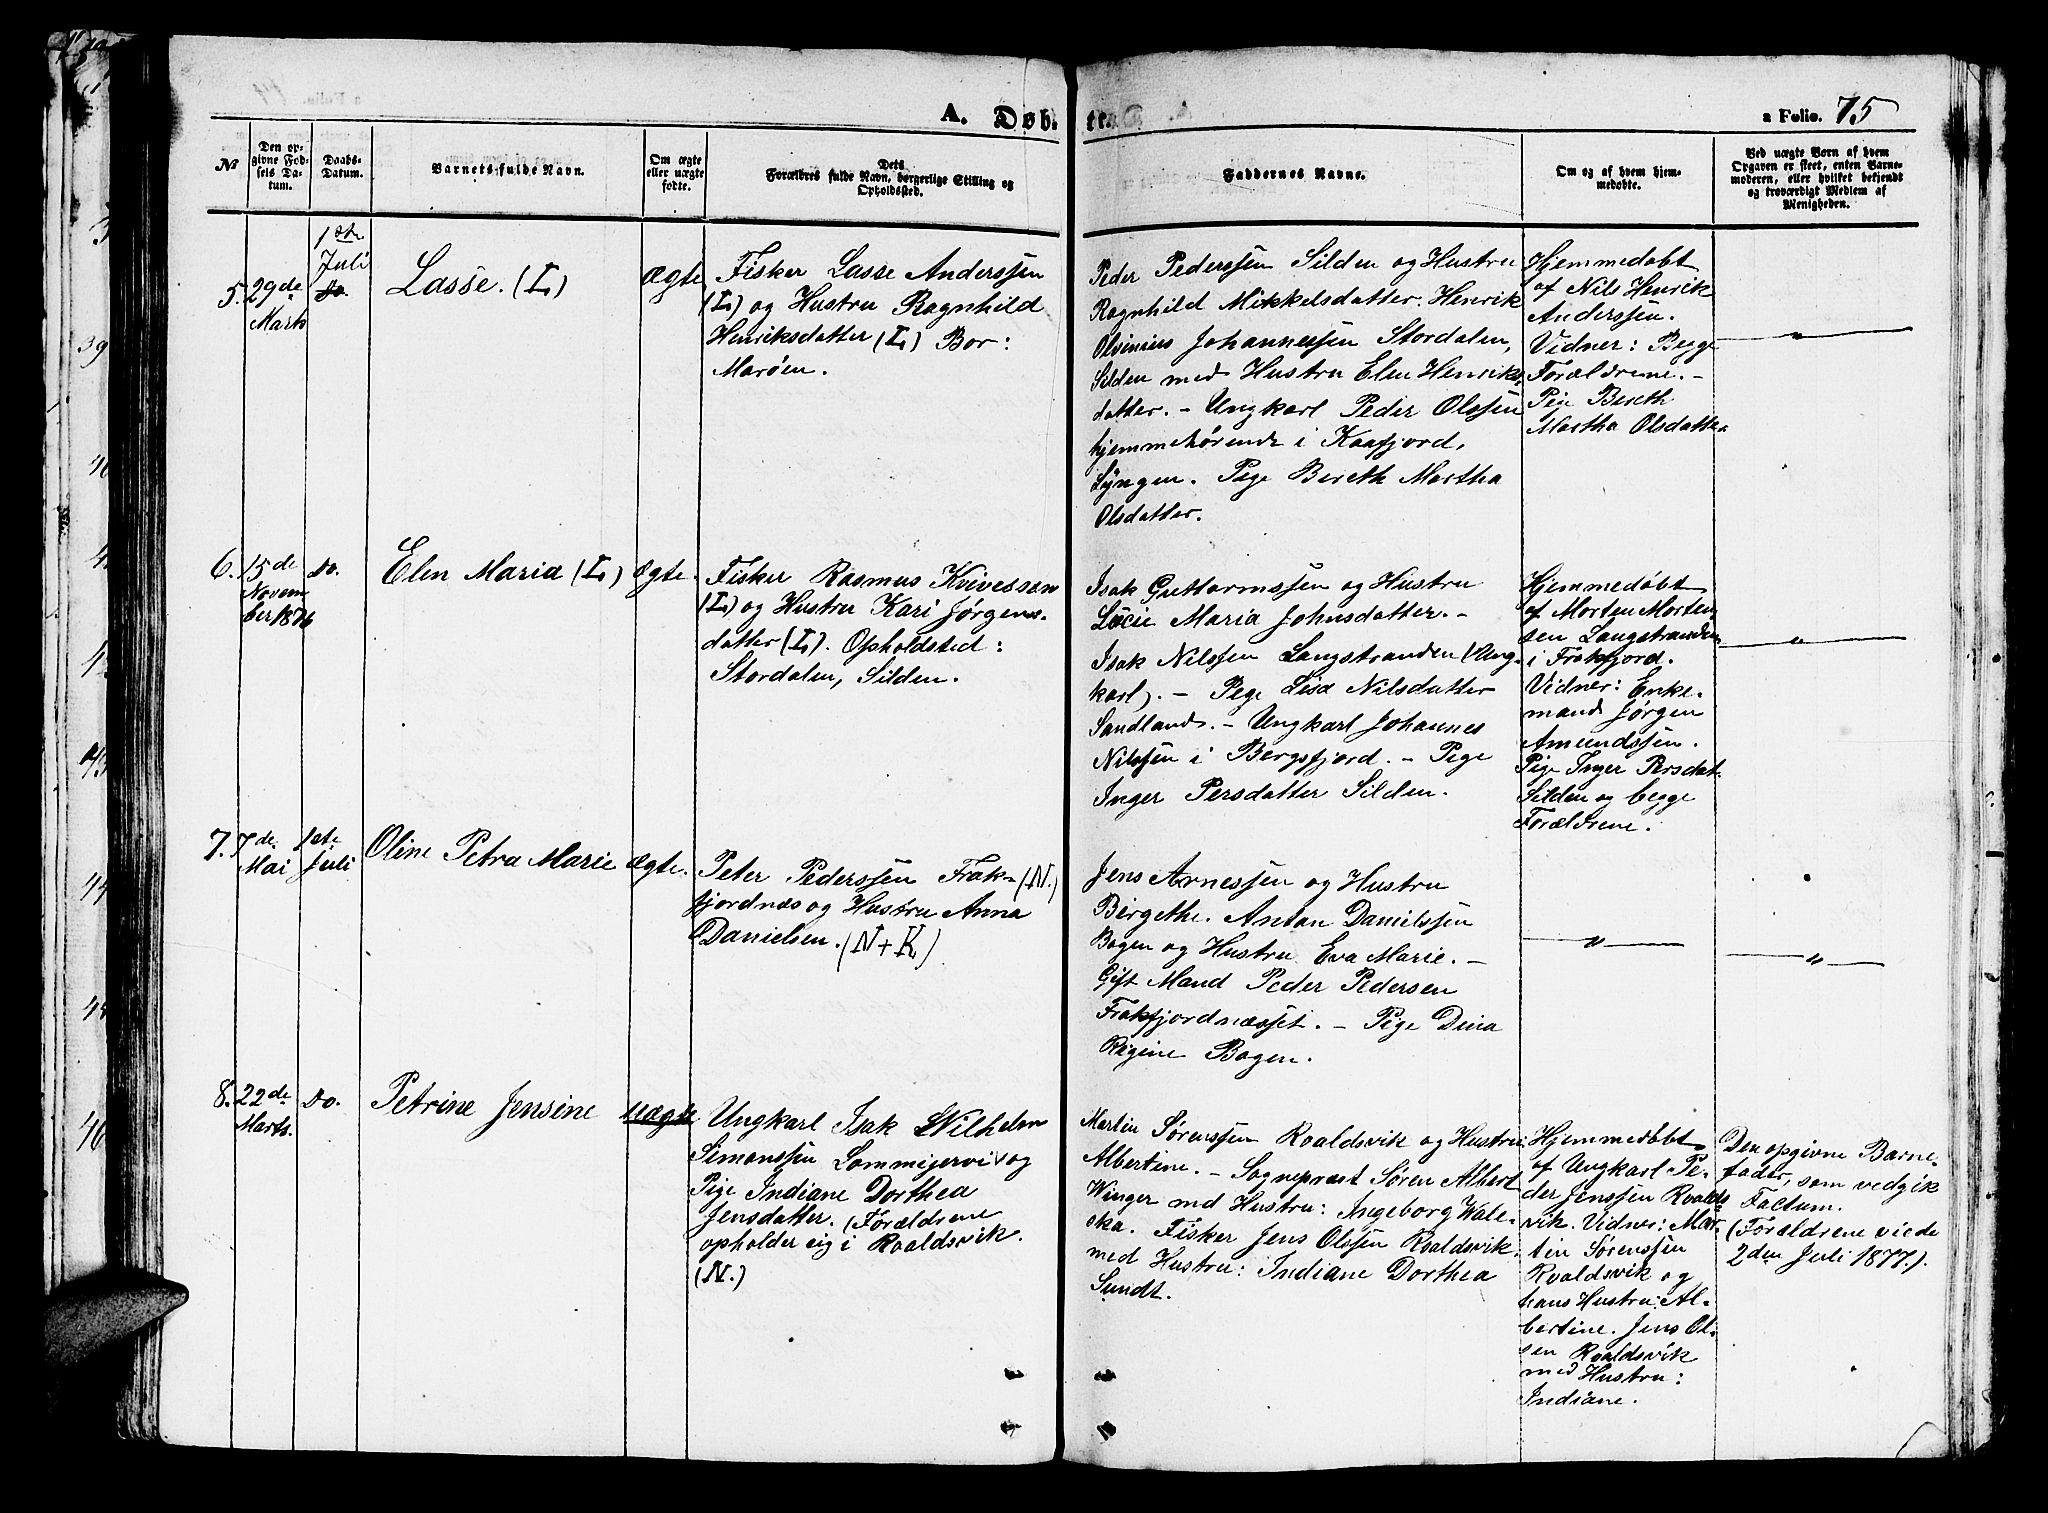 A. Døbte.
a Folio. 75
No
Den opgivne Fødsels Datum.
Daabs-Datum.
Barnets fulde Navn.
Om ægte eller uægte fødte.
Dets Forældres fulde Navn, borgerlige Stilling og Opholdssted.
Faddernes Navne.
Om og af hvem hjemmedøbte.
Ved uægte Børn af hvem Opgaven er skeet, enten Barnemoderen, eller hvilket bekjendt og troværdigt Medlem af Menigheden.
5. 29de Marts
1ste Juli
Do.
Lasse. (L)
Ægte
Fisker Lasse Anderssen
(L) og Hustru Ragnhild
Henriksdatter (L) Bor:
Marøen.
Peder Pederssen Silden og Hustru
Ragnhild Mikkelsdatter. Henrik
Olvinius Johannessen Stordalen,
Silden med Hustru Elen Henriks-
datter. – Ungkarl Peder Olssen
hjemmehørende i Kaafjord,
Lyngen. Pige Bereth Martha
Olsdatter.
Hjemmedøbt
af Nils Henrik
Anderssen.
Vidner: Begge
Forældrene. –
Pige Bereth
Martha Olsdatter
"
6. 15de November 1876
Do.
Elen Maria (L)
Ægte.
Fisker Rasmus Kvivesson
(L) og Hustru Kari Jørgens-
datter (L). Opholdsted:
Stordalen, Silden.
Isak Guttormssen og Hustru
Lucie Maria Johnsdatter. –
Isak Nilssen Langstranden (Ung-
karl). – Pige Lisa Nilsdatter
Sandland. – Ungkarl Johannes
Nilssen i Bergsfjord. – Pige
Inger Persdatter Silden.
Hjemmedøbt
af Morten Morten-
sen Langstranden
i Frakfjord.
Vidner: Enke-
mand Jørgen
Amundssen.
Pige Inger Persdat.
Silden og begge
Forældrene.
"
7. 7de Mai
1ste Juli
Oline Petra Marie
Ægte.
Peter Pederssen Frak- (N.)
fjordnæs og Hustru Anna
Danielsen. (N+K)
Jens Arnessen og Hustru
Birgethe. Anton Danielssen
Bogen og Hustru Eva Marie. –
Gift Mand Peder Pedersen
Frakfjordnæsset. – Pige Dina
Regine Bogen.
"
"
8. 22de Marts.
Do.
Petrine Jensine
uægte
Ungkarl Isak Wilhelm
Simonssen Lommijervi og
Pige Indiane Dorthea
Jensdatter. (Forældrene
opholder sig i Roaldsvik.
(N.)
Martin Sørenssen Roaldsvik og Hustru
Albertine. – Sognepræst Søren Albert
Winger med Hustru: Ingeborg Wale-
ska. Fisker Jens Olssen Roaldsvik.
med Hustru: Indiane Dorthea
Sundt.
Hjemmedøbt
af Ungkarl Pe-
der Jenssen Roalds-
vik. Vidner: Mar-
tin Sørenssen
Roaldsvik og
hans Hustru Al-
bertine. Jens Ol-
sen Roaldsvik
med Hustru:
Indiane.
Den opgivne Barne-
fader, som vedgik
Factum.
(Forældrene viede
2den Juli 1877.).